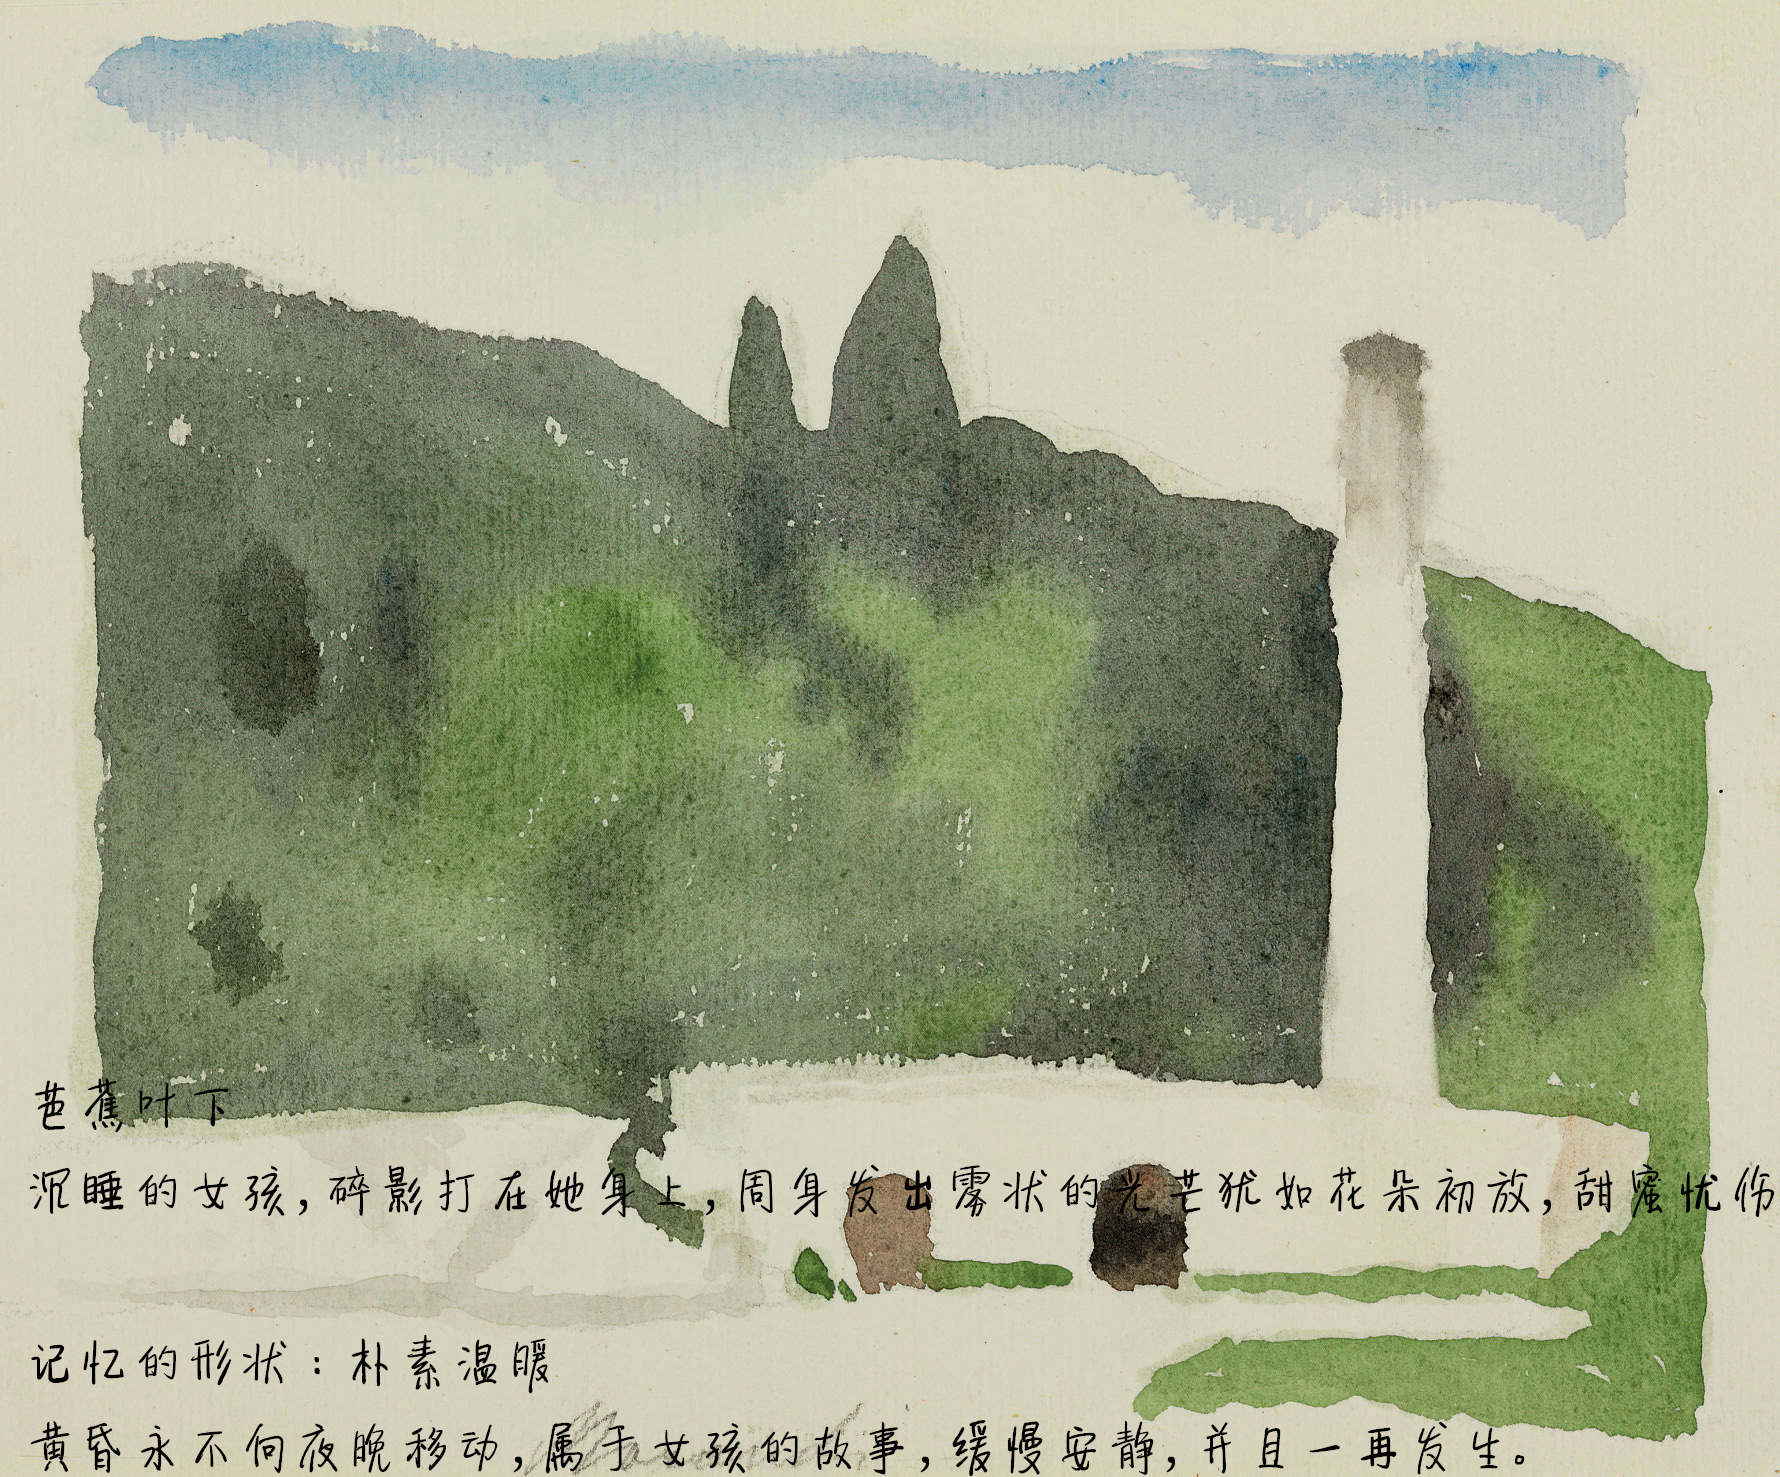 芭蕉叶下
沉睡的女孩，碎影打在她身上，周身发出雾状的光芒犹如花朵初放，甜蜜忧伤
记忆的形状：朴素温暖
黄昏永不向夜晚移动，属于女孩的故事，缓慢安静，并且一再发生。